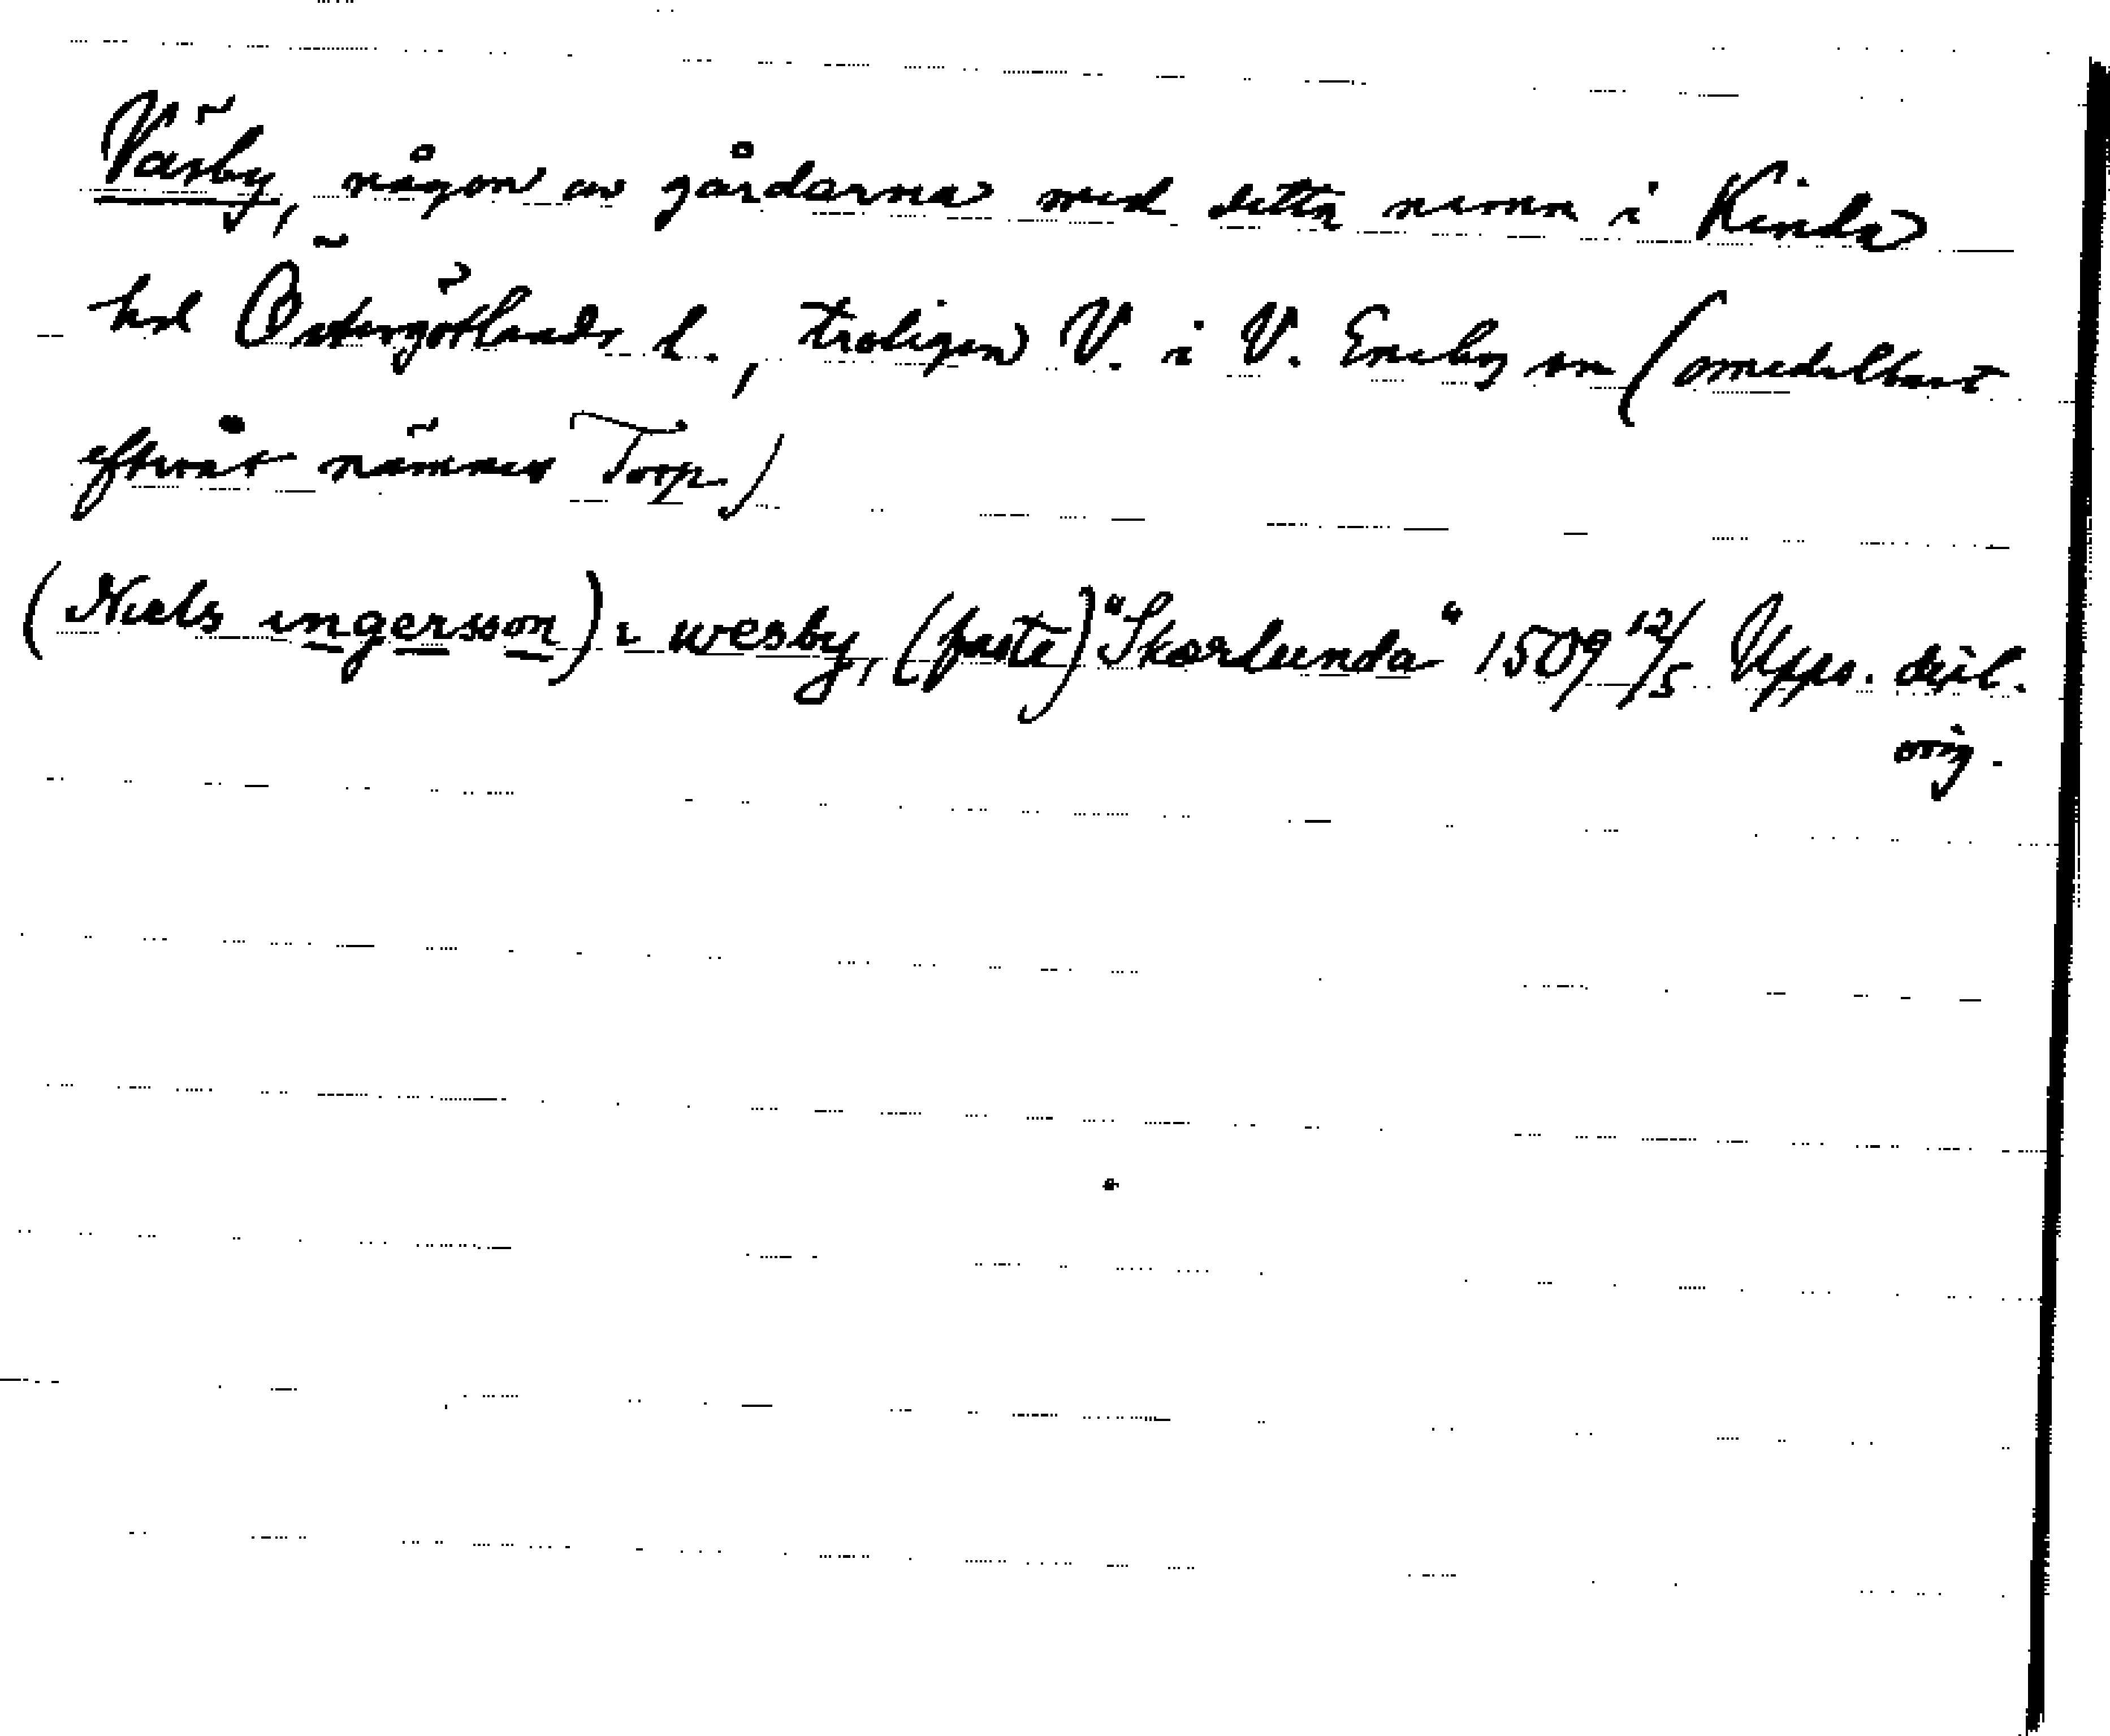 Väsby, någon av gårdarna med detta namn i Kinda
hd Östergötlands l., troligen V. i V. Eneby sn (omedelbart
efteråt nämnes Torp)
(Niels ingersson) i wesby, (faste) "Skærlunda" 1509 12/5 Upps. dipl.
orig.